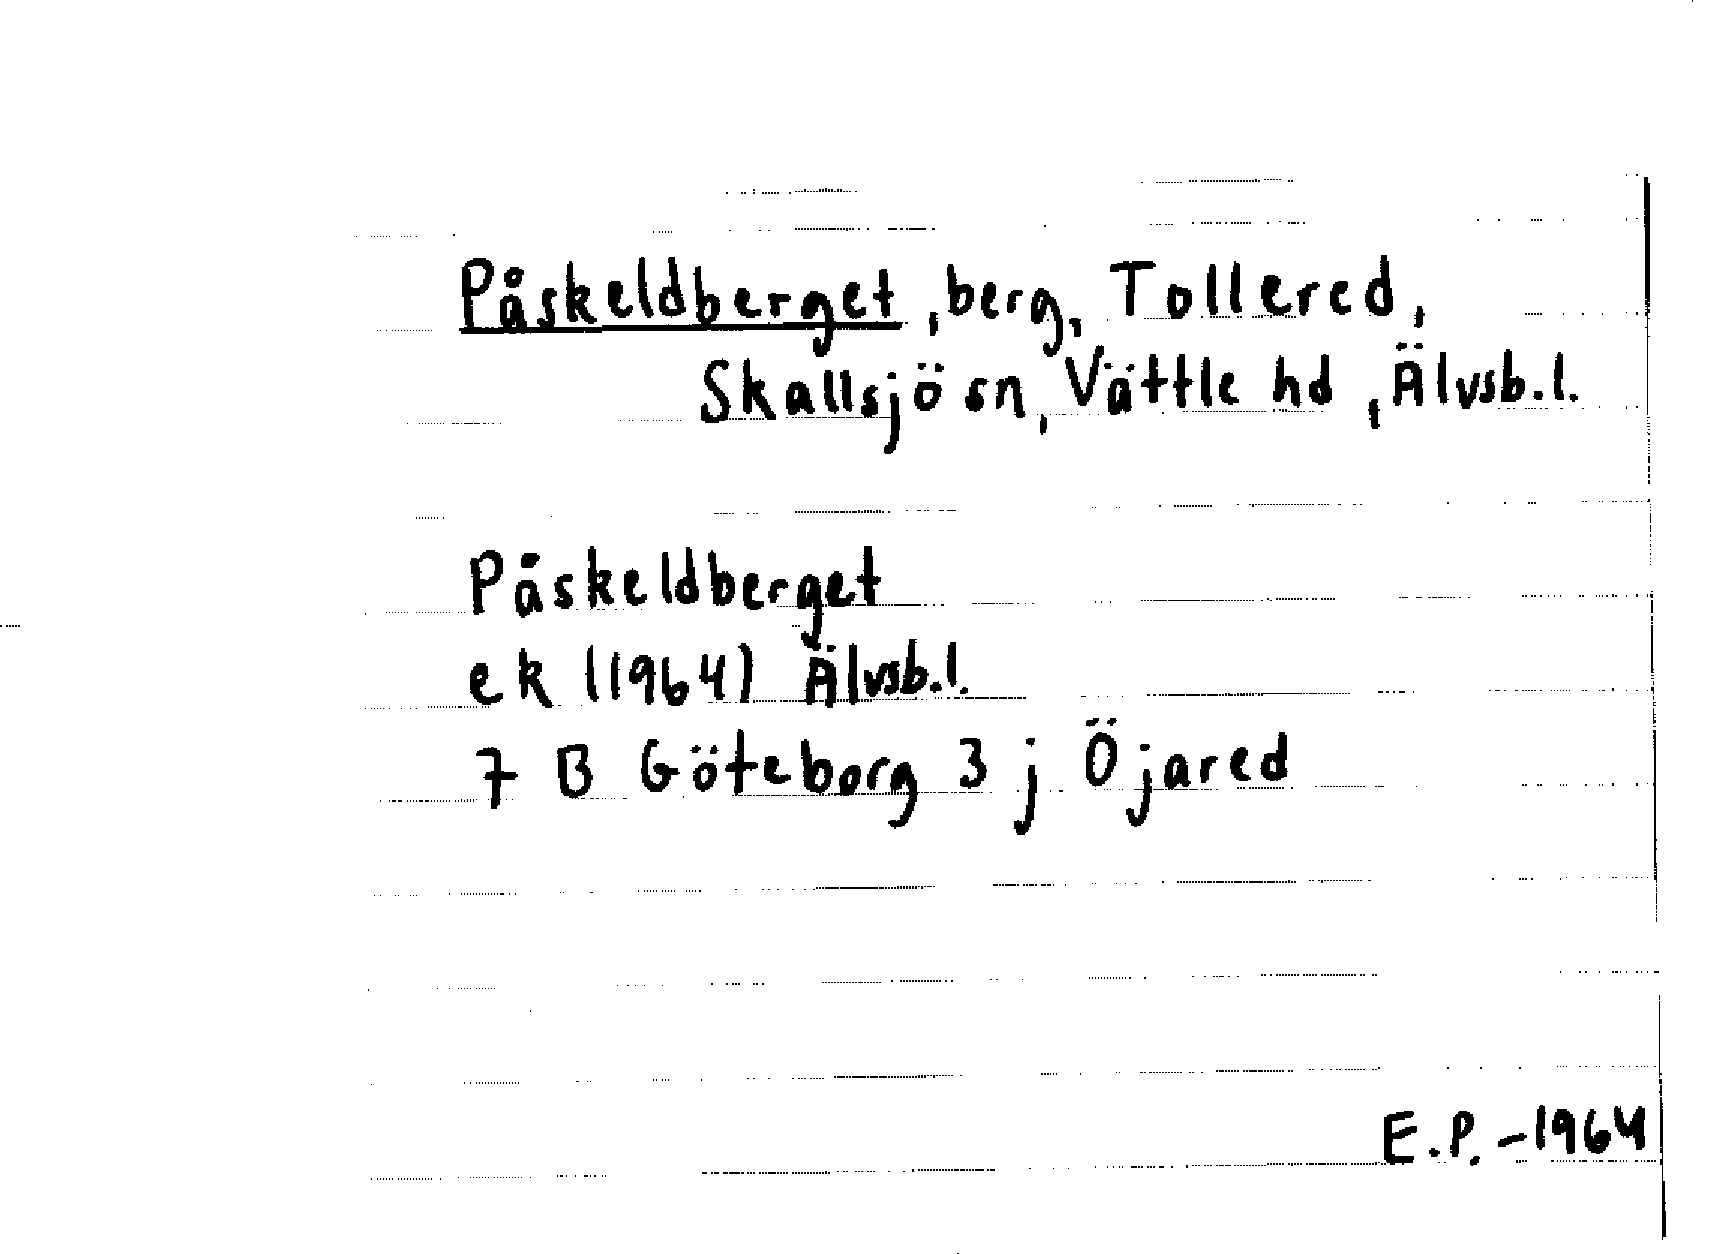 Påskeldberget, berg, Tollered,
Skallsjö sn, Vättle hd, Älvsb.l.
Påskeldberget
ek (1964) Älvsb.l.
7 B Göteborg 3 j Öjared
E.P. -1964